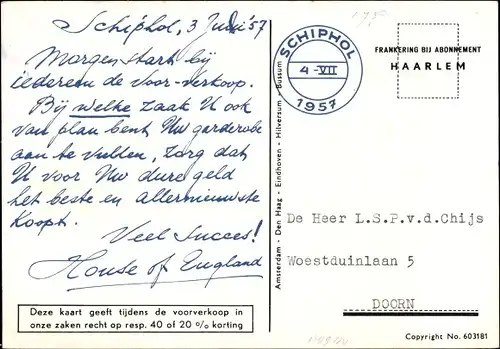 Schiphol, 3 Juli '57
Morgen start bij
iedereen de voor-verkoop.
Bij welke zaak U ook
van plan bent Uw garderobe
aan te vullen, zorg dat
U voor Uw dure geld
het beste en allernieuwste
koopt.
Veel Succes!
House of England
Deze kaart geeft tijdens de voorverkoop in
onze zaken recht op resp. 40 of 20 % korting
Amsterdam - Den Haag - Eindhoven - Hilversum - Bussum
SCHIPHOL
4-VII
1957
FRANKERING BIJ ABONNEMENT
HAARLEM
De Heer L.S.P.v.d.Chijs
Woestduinlaan 5
DOORN
Copyright No. 603181